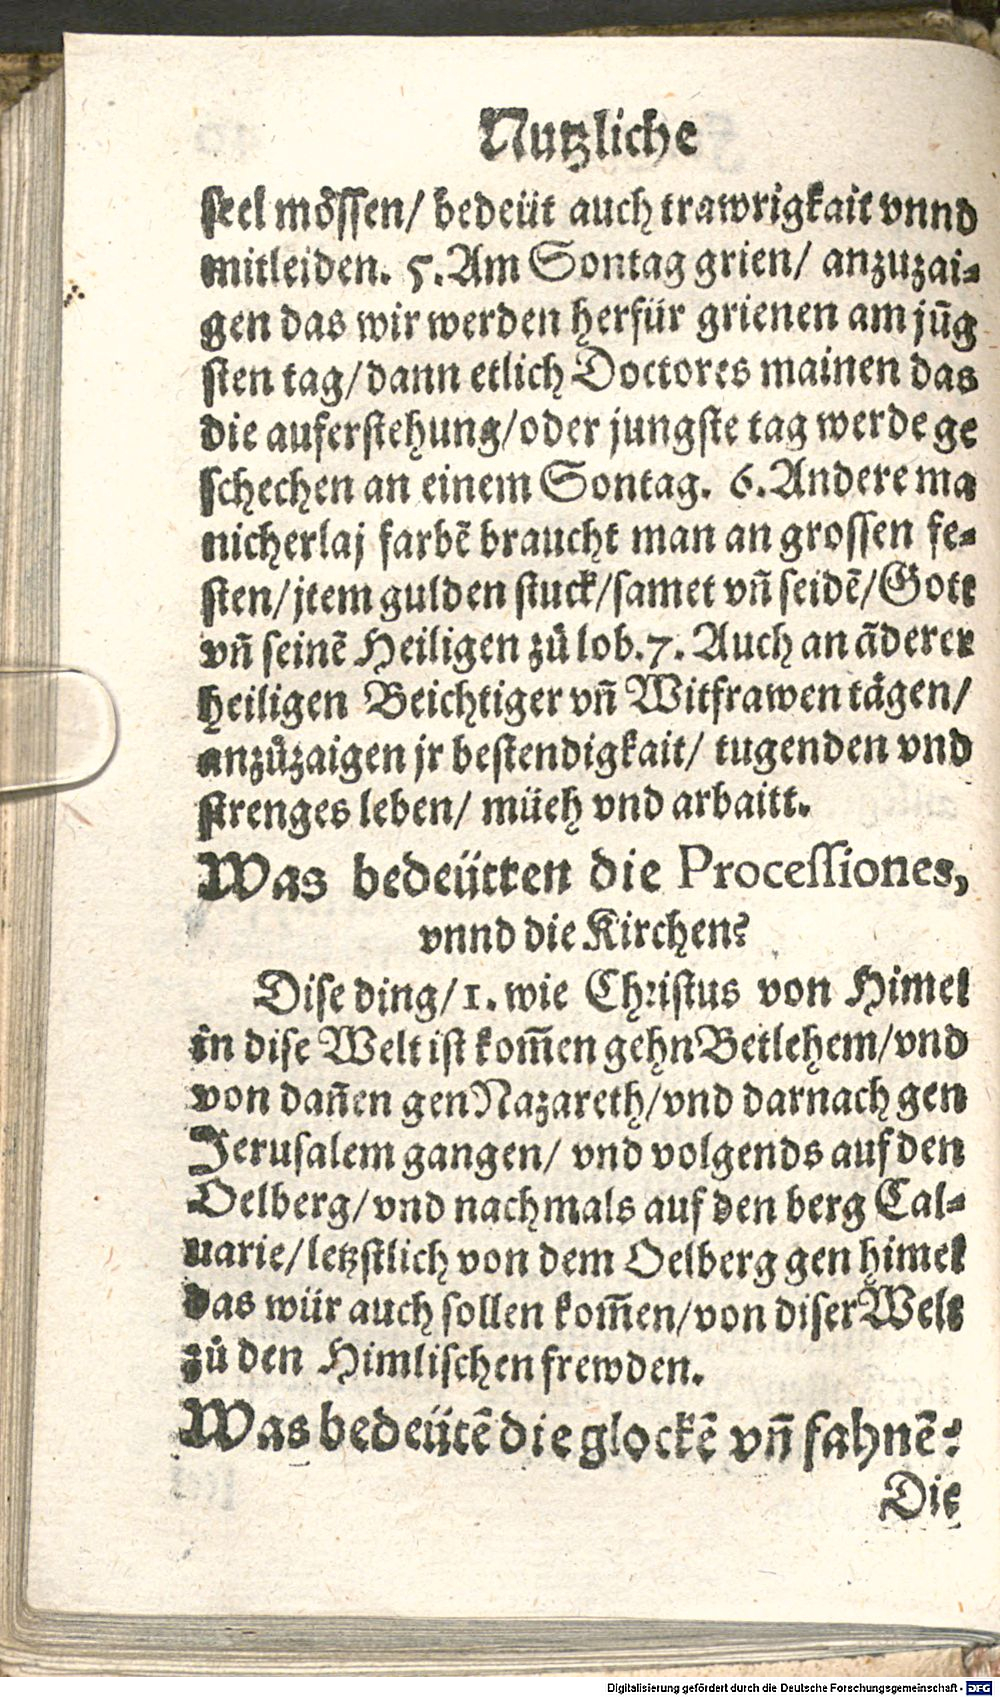 Nutzliche
seel mössen/ bedeüt auch trawrigkait vnnd
mitleiden. 5. Am Sontag grien/ anzuzai⸗
gen das wir werden herfür grienen am jũg
sten tag/dann etlich Doctores mainen das
die auferstehung/oder jungste tag werde ge
schechen an einem Sontag. 6. Andere ma
nicherlaj farbẽ braucht man an grossen fe⸗
sten/jtem gulden stuck/samet vñ seidẽ/Gott
vñ seinẽ Heiligen zů lob. 7. Auch an ãderer
heiligen Beichtiger vñ Witfrawen tägen/
anzůzaigen jr bestendigkait/ tugenden vnd
strenges leben/ müeh vnd arbaitt.
Was bedeütten die Processiones,
vnnd die Kirchen?
Dise ding/1. wie Christus von Himel
in dise Welt ist kom̃en gehn Betlehem/vnd
von dañen gen Nazareth/vnd darnach gen
Jerusalem gangen/ vnd volgends auf den
Oelberg/vnd nachmals auf den berg Cal⸗
uarie/letzstlich von dem Oelberg gen himel
das wür auch sollen kom̃en/von diser Welt
zů den Himlischen frewden.
Was bedeütẽ die glockẽ vñ fahnẽ?
Die
Digitalisierung gefördert durch die Deutsche Forschungsgemeinschaft - DFG